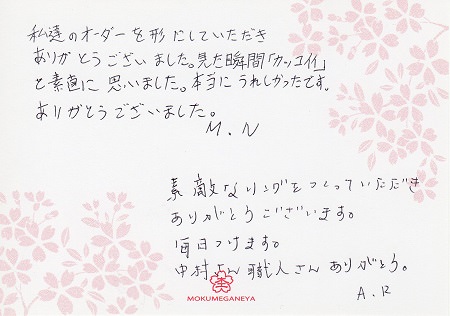 私達のオーダーを形にしていただき
ありがとうございました。見た瞬間「カッコイイ」
と素直に思いました。本当にうれしかったです。
ありがとうございました。
M.N
素敵なリングをつくっていただき
ありがとうございます。
毎日つけます。
中村さん 職人さんありがとう。
A.R
MOKUMEGANEYA